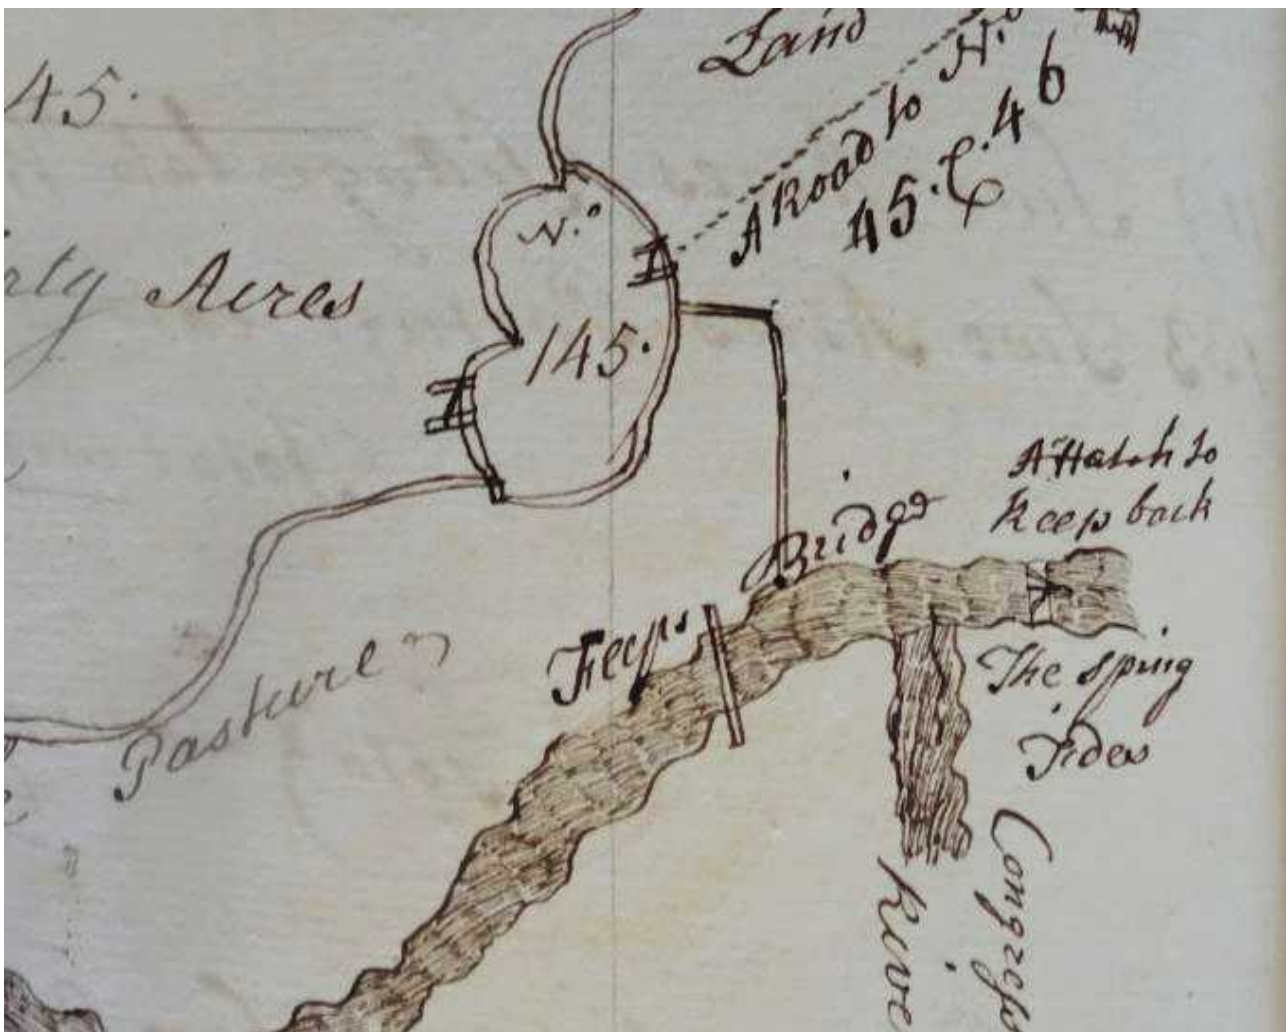 Land
45.
A Road to N.º
45. & 46
N.º
Acres
145.
A Hatch to
Keep back
Bridge
The Spring
Tides
Pasture
Congresbu
Rive